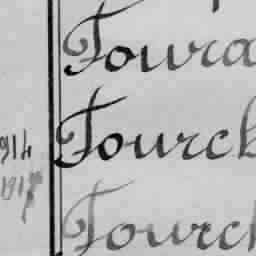 Foura
914 Fourch
1917 Fourch